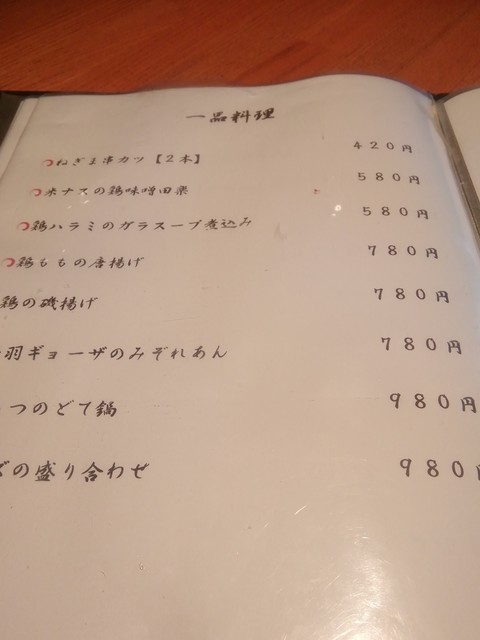 一品料理
ねぎま串カツ【2本】 420円
水ナスの鶏味噌田楽 580円
鶏ハラミのガラスープ煮込み 580円
鶏ももの唐揚げ 780円
鶏の磯揚げ 780円
羽ギョーザのみぞれあん 780円
つのどて鍋 980円
ズの盛り合わせ 980円